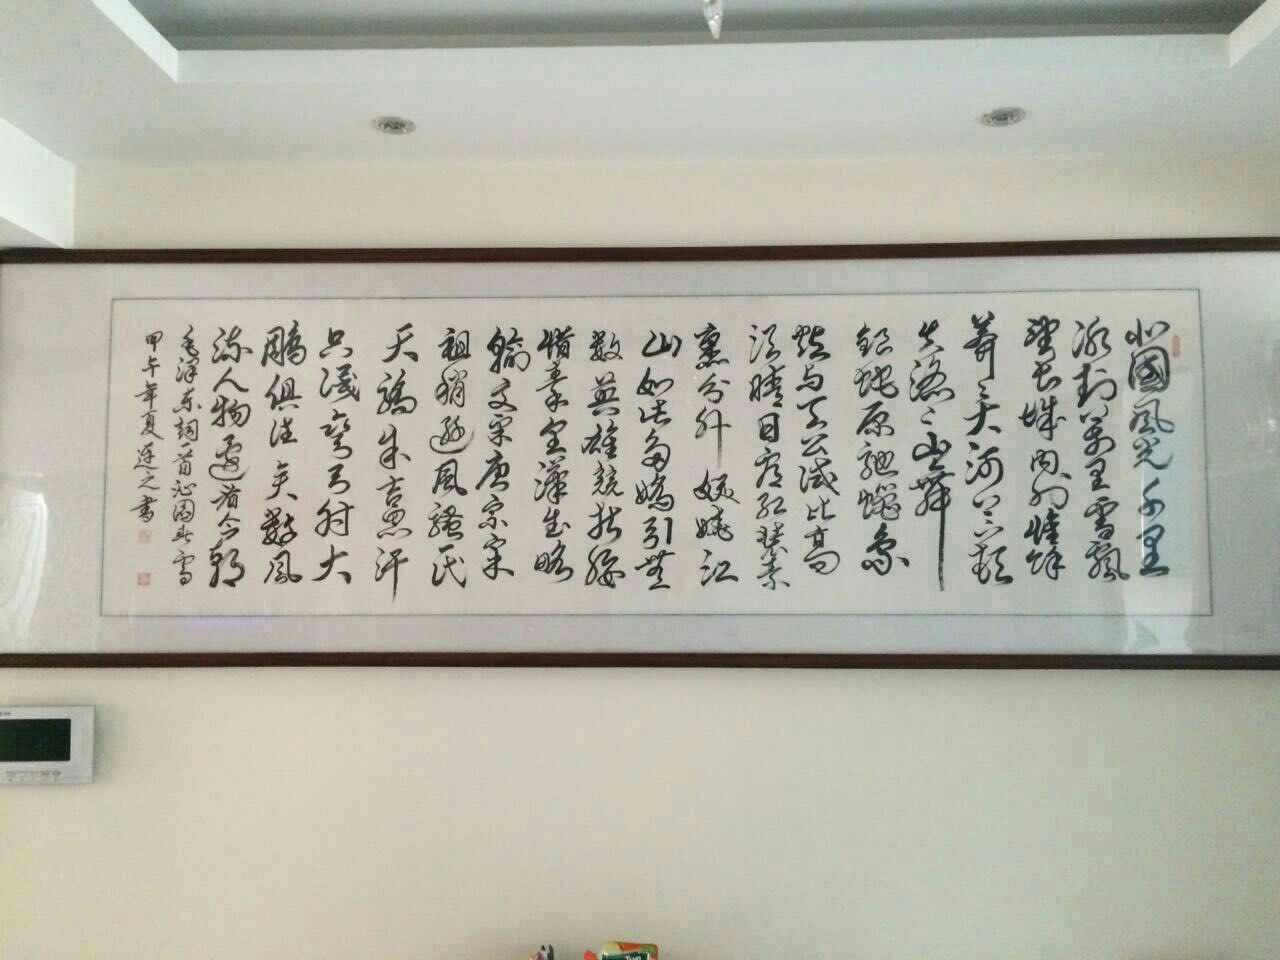 北國風光千里
冰封萬里雪飄
望长城内外惟餘
莽々大河上下頓
失滔々山舞
銀蛇原馳蠟象
欲与天公试比高
須晴日看红装素
裹分外妖娆江
山如此多嬌引無
數英雄競折腰
惜秦皇漢武略
輸文采唐宗宋
祖稍逊風騷一代
天驕成吉思汗
只识弯弓射大
鵰俱往矣數風
流人物還看今朝
毛泽东詞一首沁園春雪
甲午年夏连之書